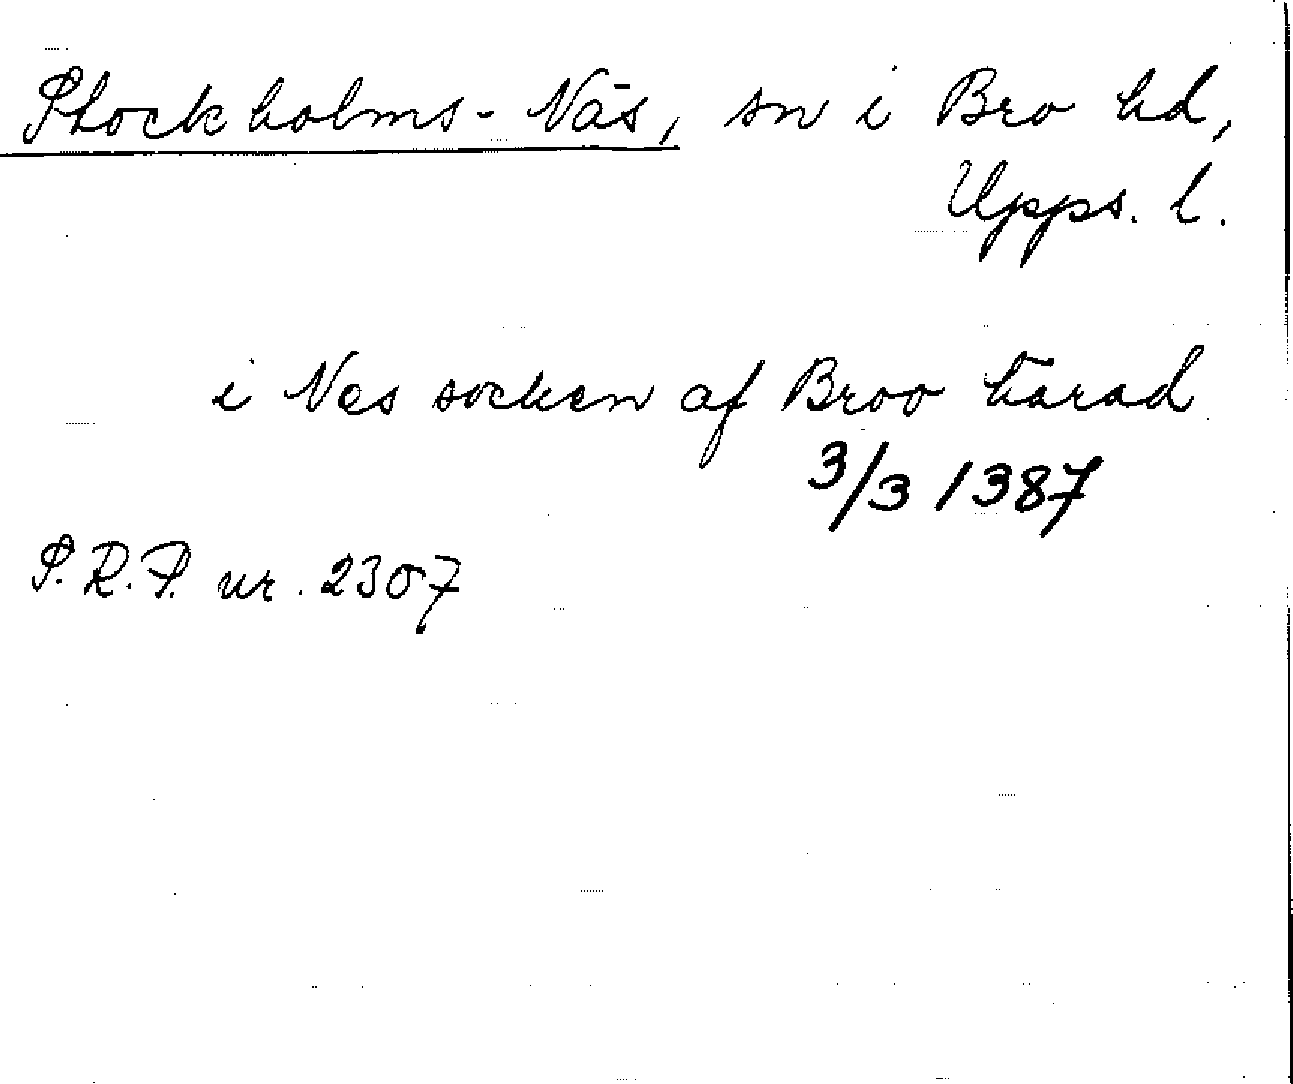 Stockholms-Näs, sn i Bro hd,
Upps. l.
i Nes socken af Broo härad
3/3 1387
S.R.P. nr. 2307